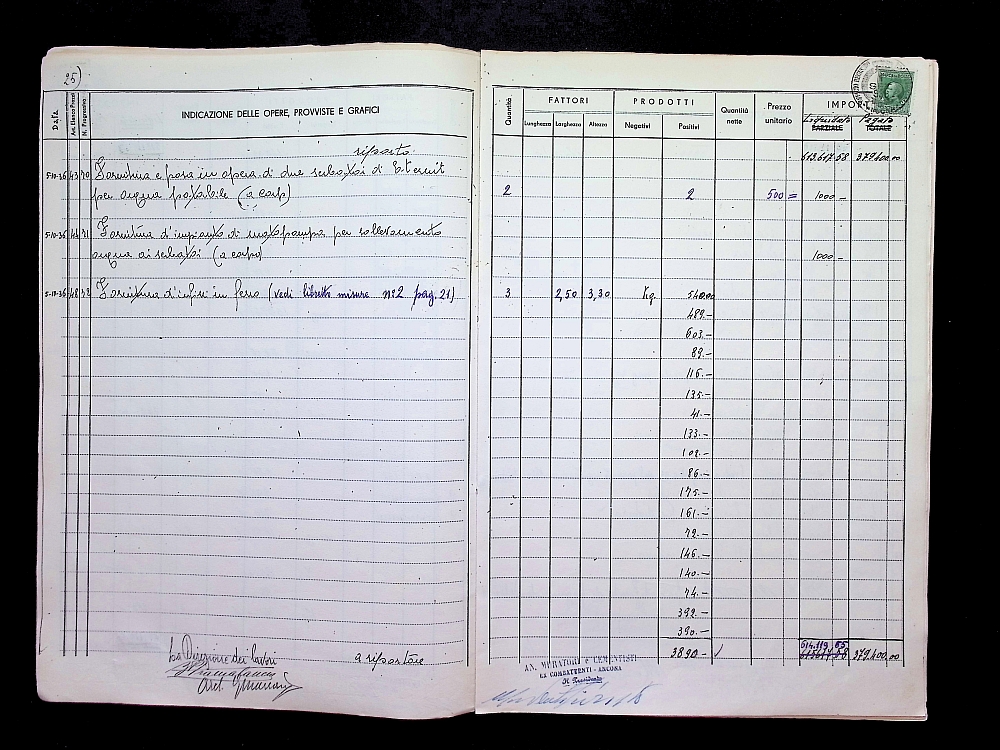 25)
Data
Art. Elenco Prezzi
N. Progressivo
INDICAZIONE DELLE OPERE, PROVVISTE E GRAFICI
Quantità
FATTORI
Lunghezza Larghezza Altezza
PRODOTTI
Negativi Positivi
Quantità nette
Prezzo unitario
IMPORT
Liquidato Pagato
PARZIALE TOTALE
riporto 613.617.58 379.400.00
5-10-36 43 70 Fornitura e posa in opera di due serbatoi di Eternit
per acqua potabile (a corpo) 2 2 500 = 1000 -
5-10-36 44 71 Fornitura d'impianto di motopompa per sollevamento
acqua ai serbatoi (a corpo) 1000 -
5-10-36 48 72 Fornitura d'infissi in ferro (vedi libretto misure n°2 pag. 21) 3 2,50 3,30 Kg. 540.00
489.-
603.-
89.-
116.-
135.-
41.-
133.-
102.-
86.-
175.-
161.-
72.-
146.-
140.-
74.-
392.-
390.-
614.119.85
La Direzione dei lavori a riportare 3890.- 615.617.58 379.400.00
Arch.
AN. MURATORI e CEMENTISTI
EX COMBATTENTI - ANCONA
Il Presidente